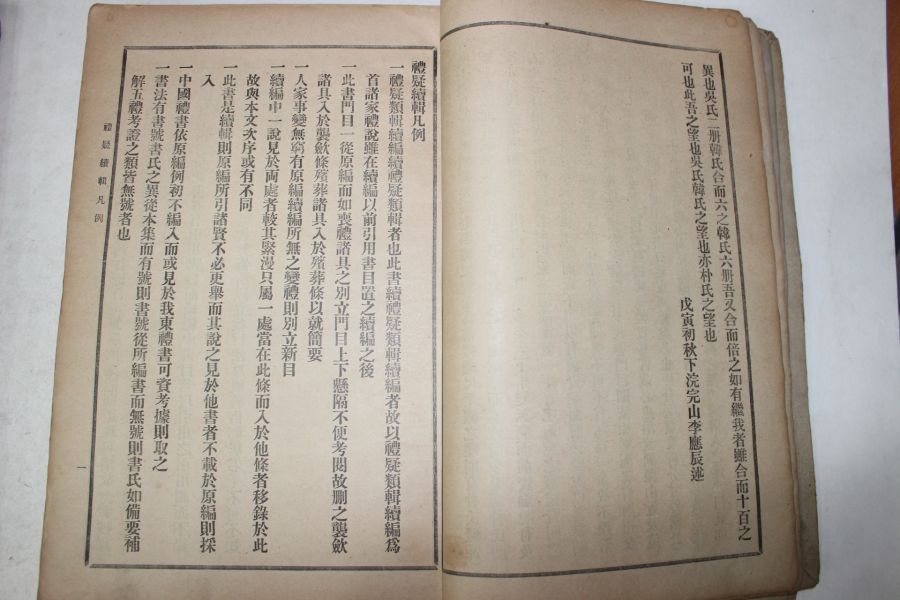 異也吳氏二册韓氏合而六之韓氏六册吾又合而倍之如有繼我者雖合而十百之
可也此吾之望也吳氏韓氏之望也亦朴氏之望也
戊寅初秋下浣完山李應辰述
禮疑續輯凡例
一禮疑類輯續編續禮疑類輯者也此書續禮疑類輯續編者故以禮疑類輯續編爲
首諸家禮說雖在續編以前引用書目置之續編之後
一此書門目一從原編而如喪禮諸具之別立門目上下懸隔不便考閱故删之襲斂
諸具入於襲斂條殯葬諸具入於殯葬條以就簡要
一人家事變無窮有原編續編所無之變禮則別立新目
一續編中一說見於兩處者較其緊漫只屬一處當在此條而入於他條者移錄於此
故與本文次序或有不同
一此書是續輯則原編所引諸賢不必更擧而其說之見於他書者不載於原編則採
入
一中國禮書依原編例初不編入而或見於我東禮書可資考據則取之
一書法有書號書氏之異從本集而有號則書號從所編書而無號則書氏如備要補
解五禮考證之類皆無號者也
禮疑續輯凡例
一